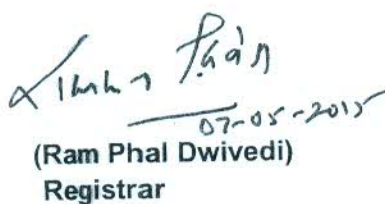 07-05-2015
(Ram Phal Dwivedi)
Registrar